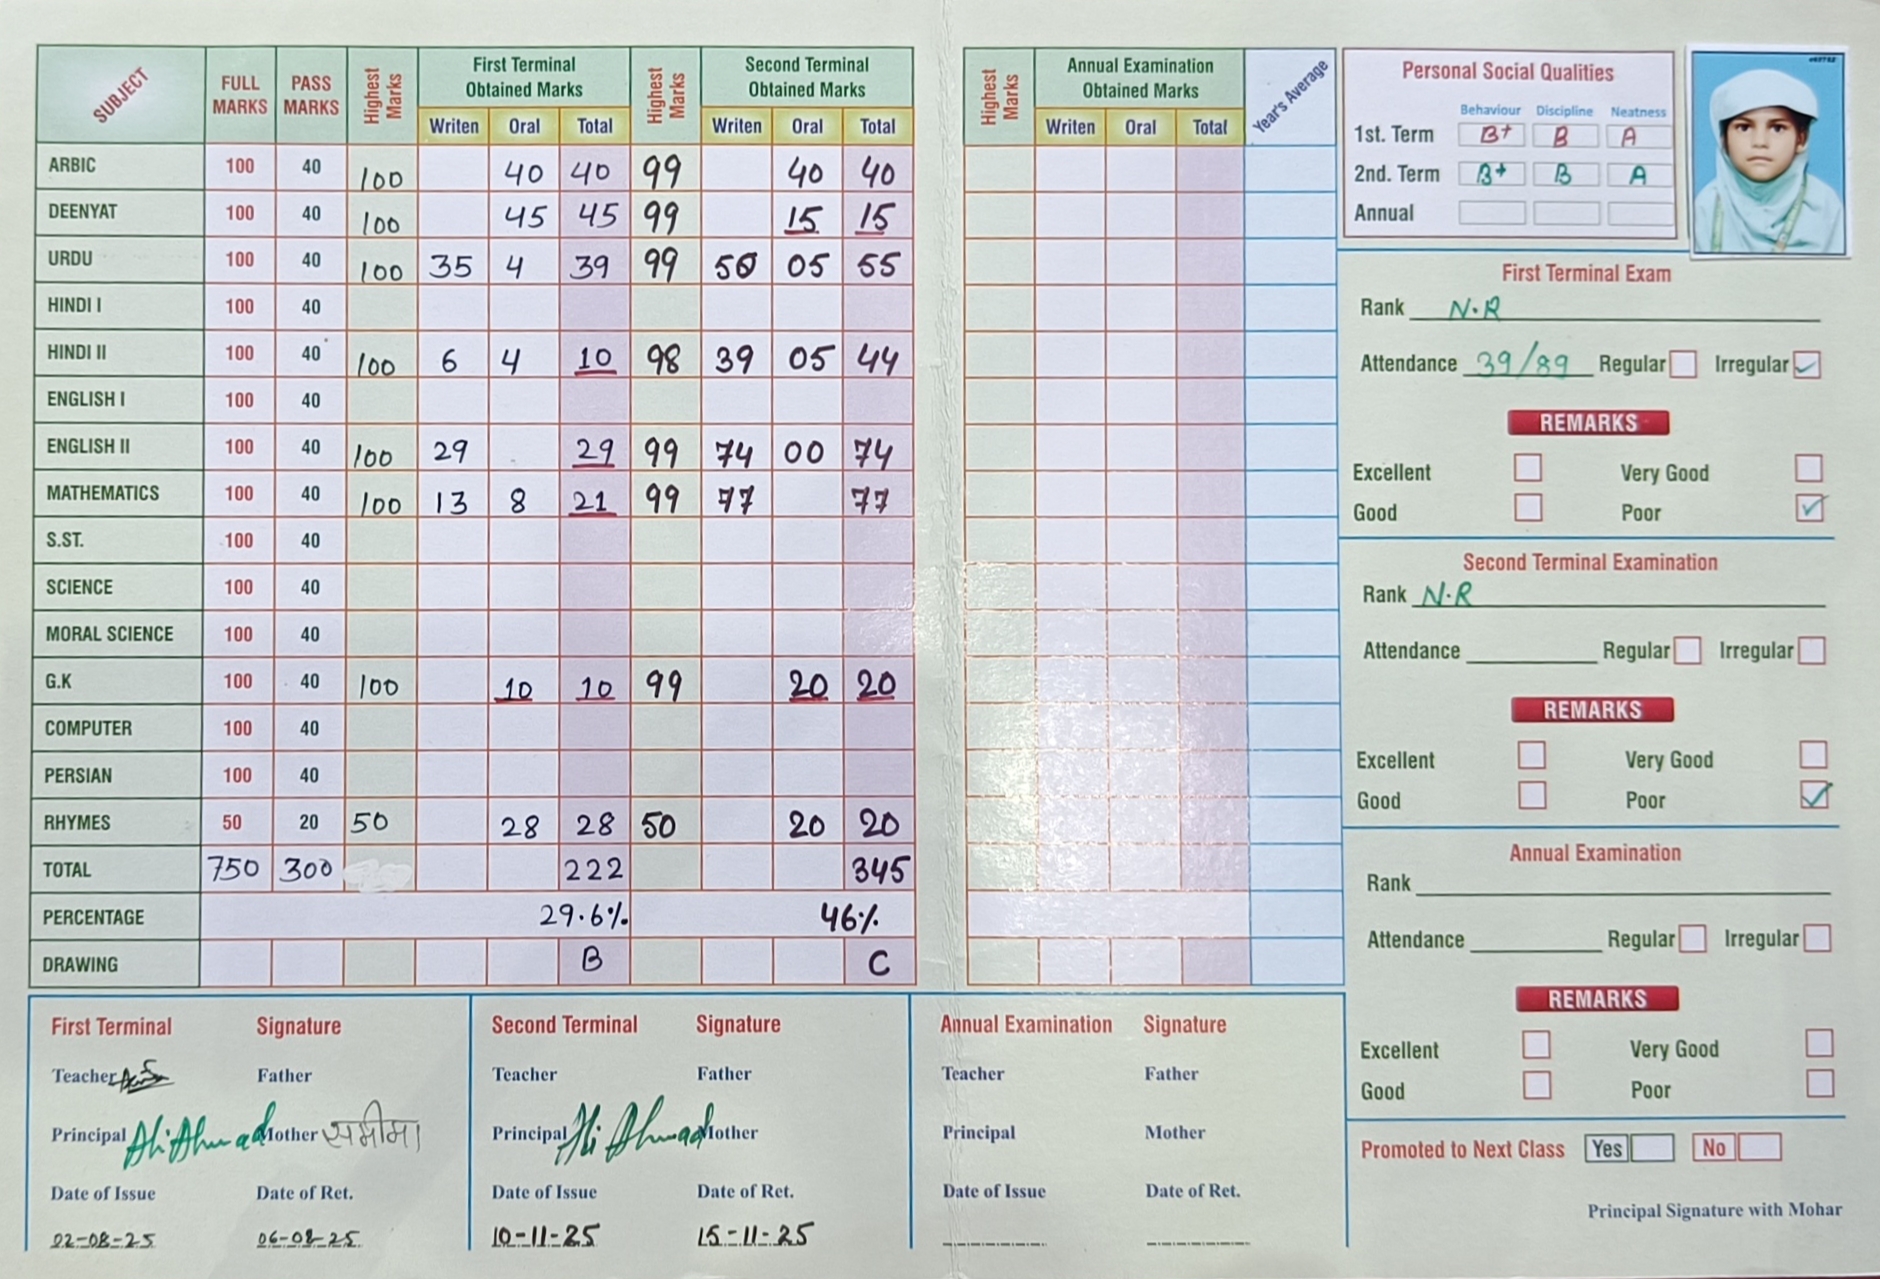 SUBJECT FULL MARKS PASS MARKS Highest Marks First Terminal Obtained Marks Highest Marks Second Terminal Obtained Marks
Writen Oral Total Writen Oral Total
ARBIC 100 40 100 40 40 99 40 40
DEENYAT 100 40 100 45 45 99 15 15
URDU 100 40 100 35 4 39 99 50 05 55
HINDI I 100 40
HINDI II 100 40 100 6 4 10 98 39 05 44
ENGLISH I 100 40
ENGLISH II 100 40 100 29 29 99 74 00 74
MATHEMATICS 100 40 100 13 8 21 99 77 77
S.ST. 100 40
SCIENCE 100 40
MORAL SCIENCE 100 40
G.K 100 40 100 10 10 99 20 20
COMPUTER 100 40
PERSIAN 100 40
RHYMES 50 20 50 28 28 50 20 20
TOTAL 750 300 222 345
PERCENTAGE 29.6% 46%
DRAWING B C
Highest Marks Annual Examination Obtained Marks Year's Average
Writen Oral Total
Personal Social Qualities
Behaviour Discipline Neatness
1st. Term B+ B A
2nd. Term B+ B A
Annual
First Terminal Exam
Rank N.R
Attendance 39/89 Regular Irregular
REMARKS
Excellent Very Good
Good Poor
Second Terminal Examination
Rank N.R
Attendance Regular Irregular
REMARKS
Excellent Very Good
Good Poor
Annual Examination
Rank
Attendance Regular Irregular
REMARKS
Excellent Very Good
Good Poor
Promoted to Next Class Yes No
Principal Signature with Mohar
First Terminal Signature
Teacher Father
Principal Ali Ahmad Mother समीमा
Date of Issue Date of Ret.
02-08-25 06-08-25
Second Terminal Signature
Teacher Father
Principal Ali Ahmad Mother
Date of Issue Date of Ret.
10-11-25 15-11-25
Annual Examination Signature
Teacher Father
Principal Mother
Date of Issue Date of Ret.